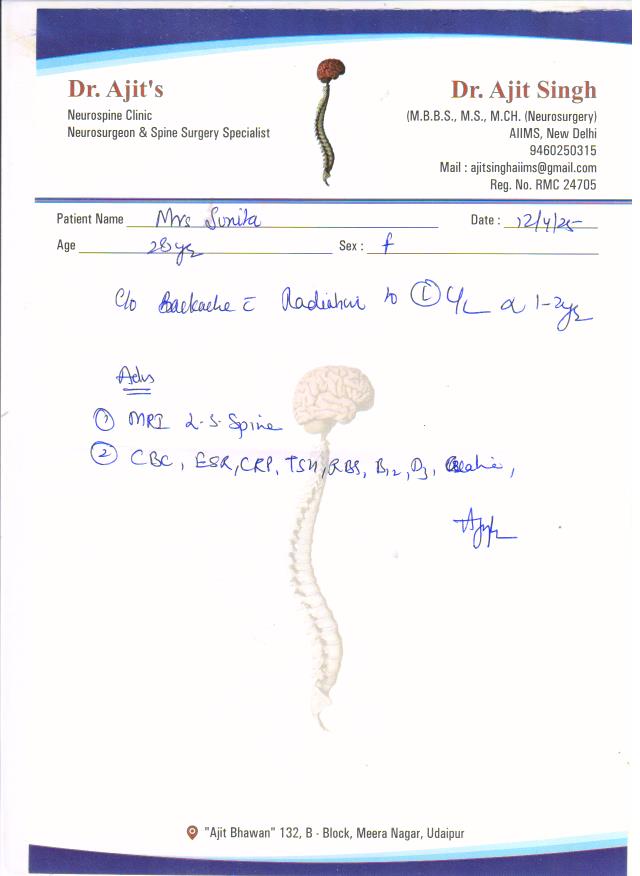 Dr. Ajit's
Neurospine Clinic
Neurosurgeon & Spine Surgery Specialist
Dr. Ajit Singh
(M.B.B.S., M.S., M.CH. (Neurosurgery)
AIIMS, New Delhi
9460250315
Mail : ajitsinghaiims@gmail.com
Reg. No. RMC 24705
Patient Name Mrs Sunita Date : 12/4/25
Age 28 yrs Sex : f
C/o Backache c̄ Radiation to Ⓛ L/L 1-2 yrs
Adv
① MRI L.S. Spine
② CBC, ESR, CRP, TSH, RBS, B12, D3,
"Ajit Bhawan" 132, B - Block, Meera Nagar, Udaipur